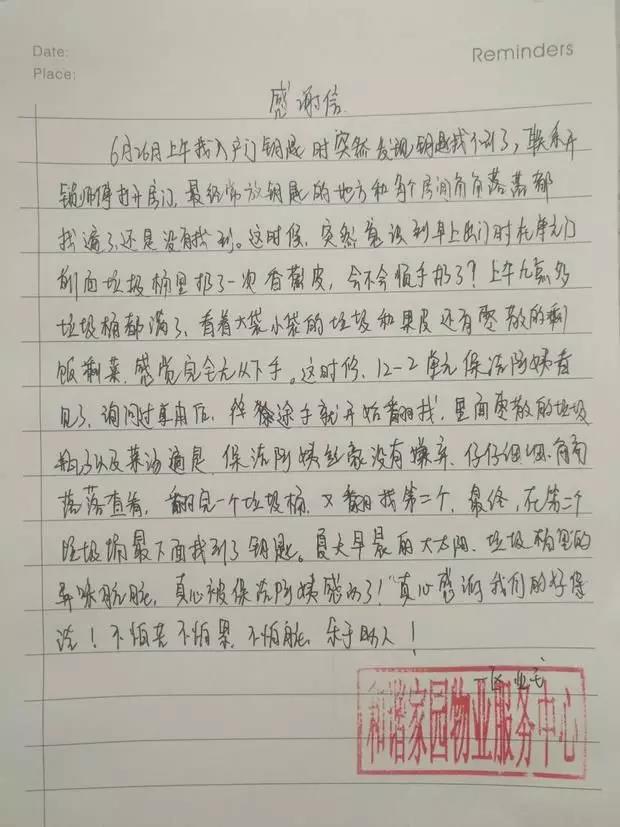 Date:
Reminders
Place:
感谢信
6月26月上午我入户门钥匙时突然发现钥匙找不到了,联系开
锁师傅打开房门,最经常放钥匙的地方和每个房间角角落落都
找遍了还是没有找到。这时候,突然意识到早上出门时在单元门
前面垃圾桶里扔了一次香蕉皮,会不会顺手扔了?上午九点多
垃圾桶都满了,看着大袋小袋的垃圾和果皮还有零散的剩
饭剩菜,感觉完全无从下手。这时候,12-2单元保洁阿姨看
见了,询问过真相后,徒手就开始翻找,里面零散的垃圾
瓶子以及菜汤遍是,保洁阿姨丝毫没有嫌弃,仔仔细细角角
落落查看,翻完一个垃圾桶,又翻找第二个,最终,在第二个
垃圾桶最下面找到了钥匙。夏天早晨的大太阳,垃圾桶里的
异味肮脏,真心被保洁阿姨感动了!真心感谢我们的好保
洁!不怕苦不怕累,不怕脏,乐于助人!
一区业主
和谐家园物业服务中心